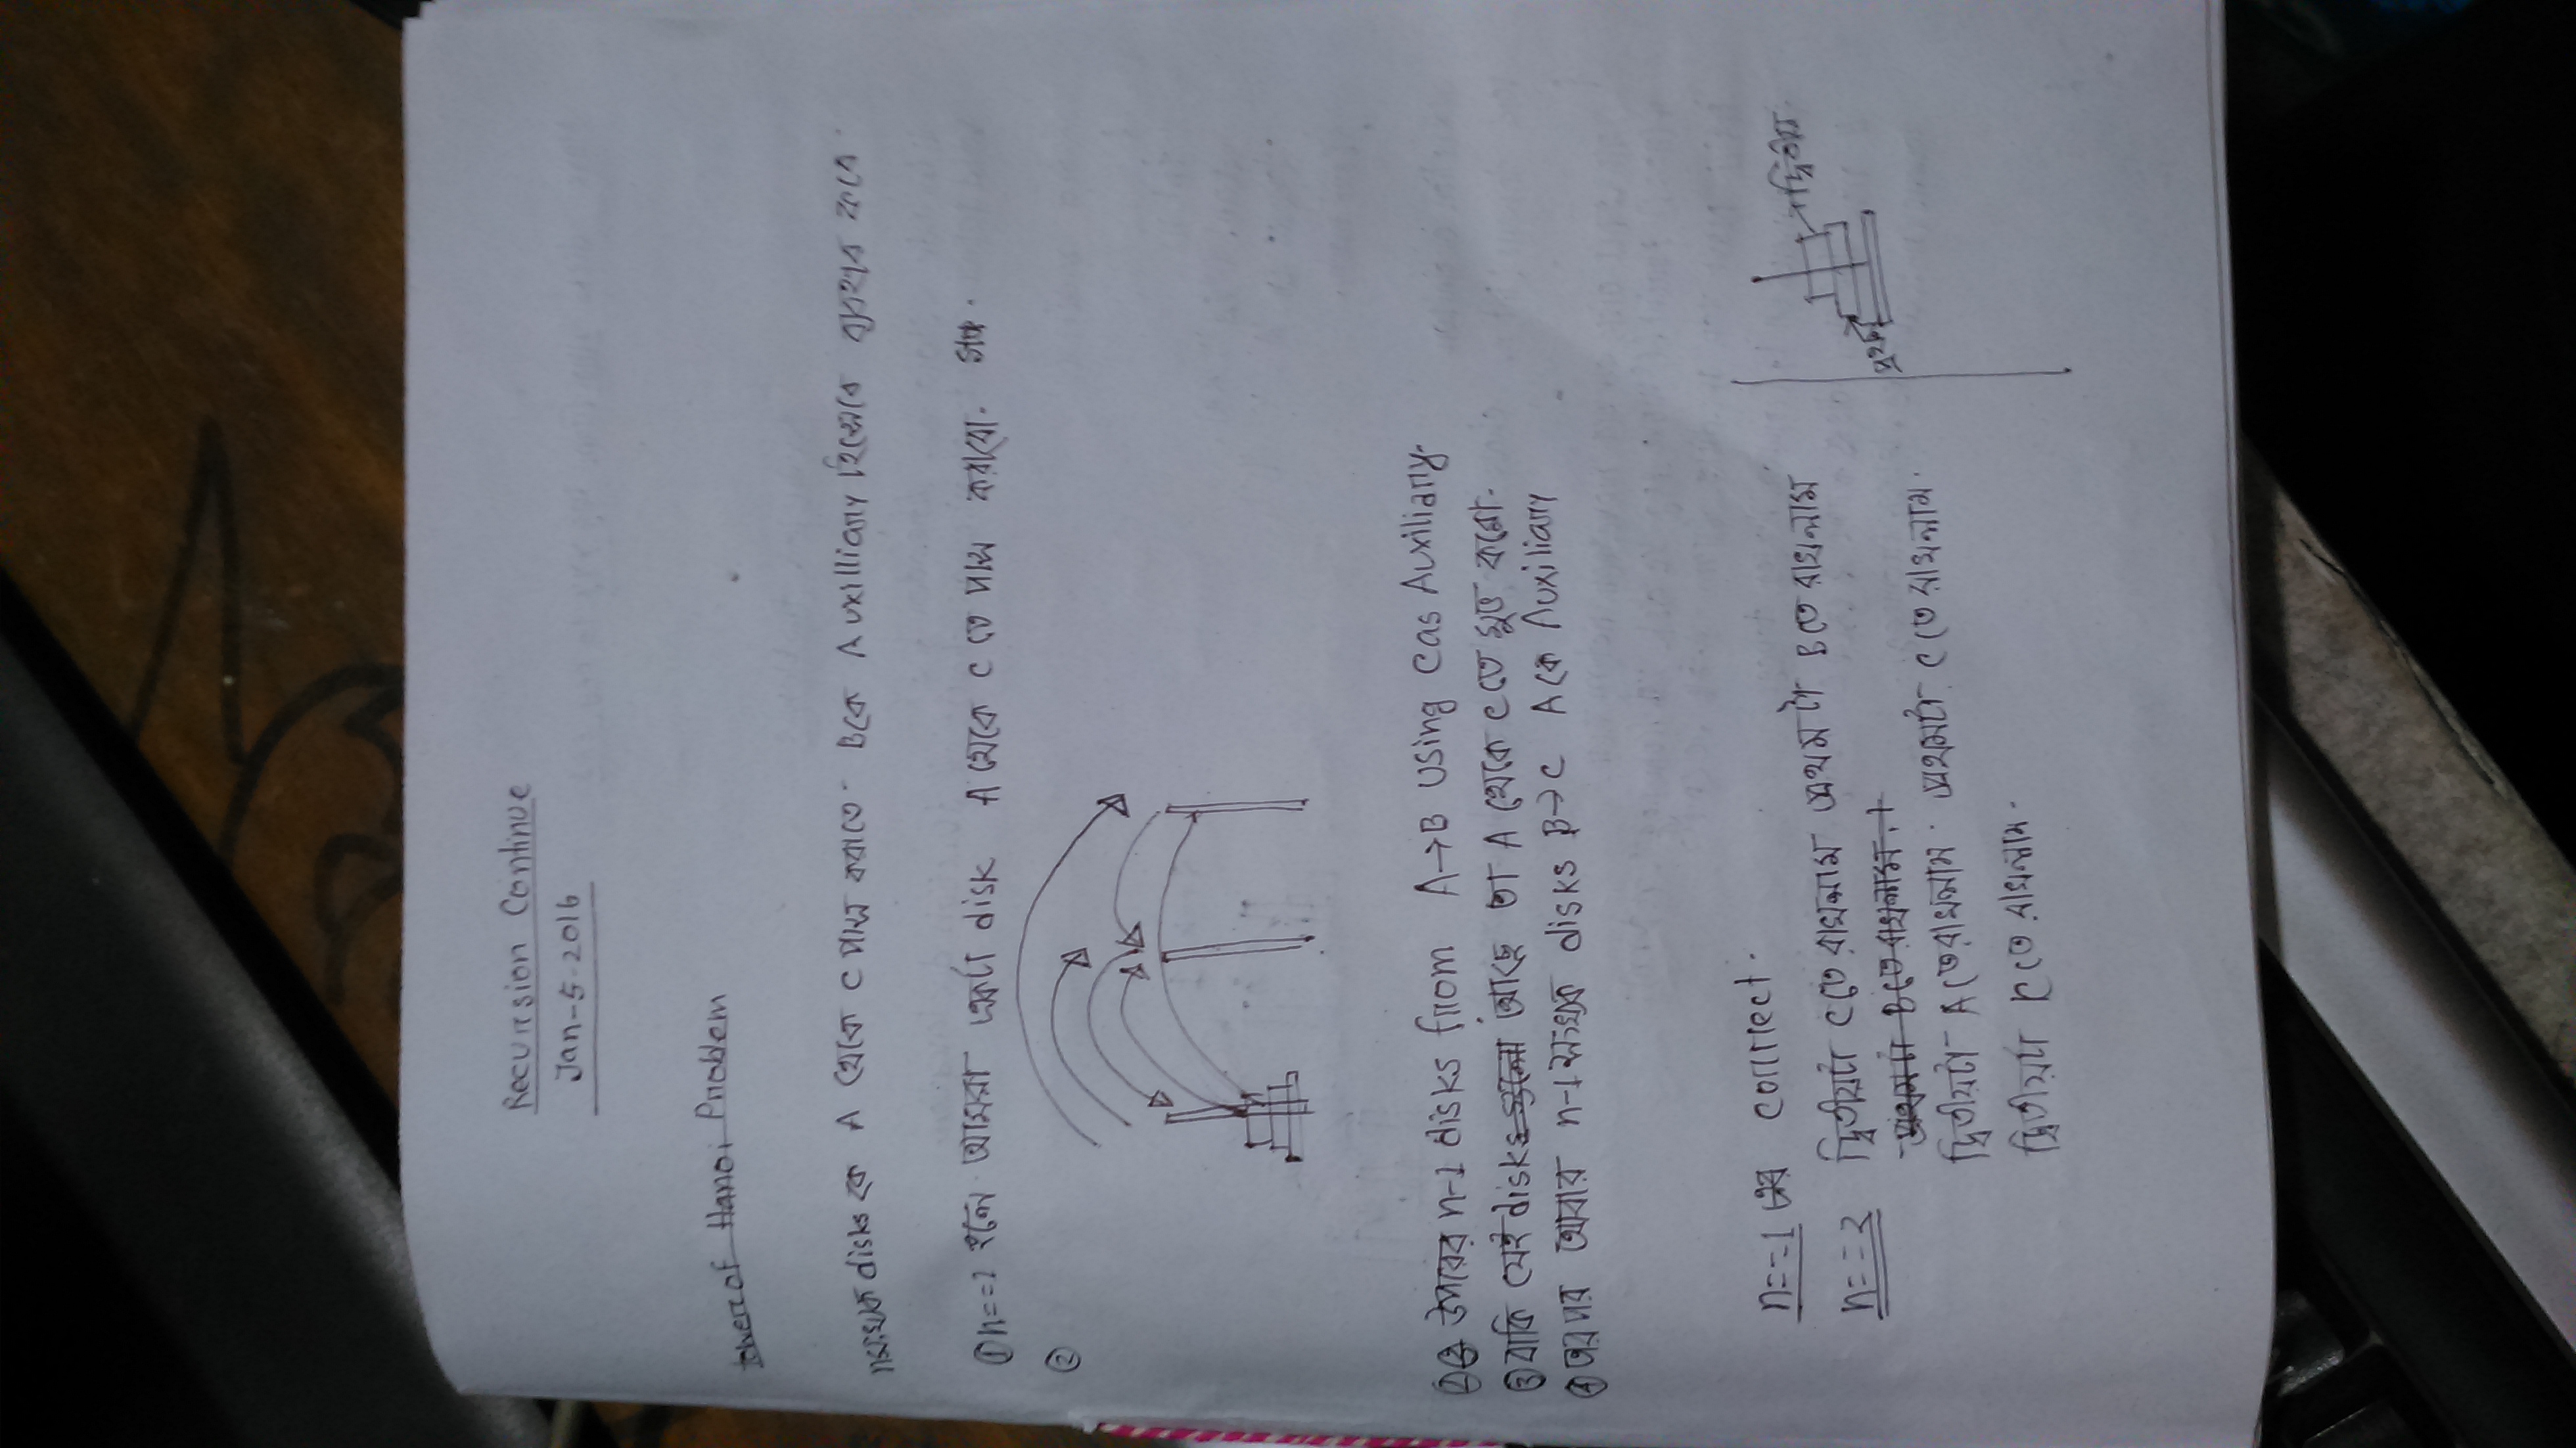 Recursion Continue
Jan-5-2016
tower of Hanoi Problem
nসংখ্যক disks কে A থেকে C পাস করাতে. Bকে Auxilliary হিসেবে ব্যবহার করে.
① n==1 হলে আমরা একটা disk A থেকে C তে পাস করাবো.
②
② উপরের n-1 disks from A→B using C as Auxiliary.
③ বাকি যেই disks আছে তা A থেকে C তে মুভ করো.
④ তারপর আবার n-1 সংখ্যক disks B→C A কে Auxiliary
n==1 এর correct.
n==2 দ্বিতীয়টা C তে রাখলাম প্রথম টা B তে রাখলাম
প্রথমটা B তে রাখলাম.
দ্বিতীয়টা A তে রাখলাম. প্রথমটা C তে রাখলাম.
দ্বিতীয়টা C তে রাখলাম.
প্রথম
দ্বিতীয়